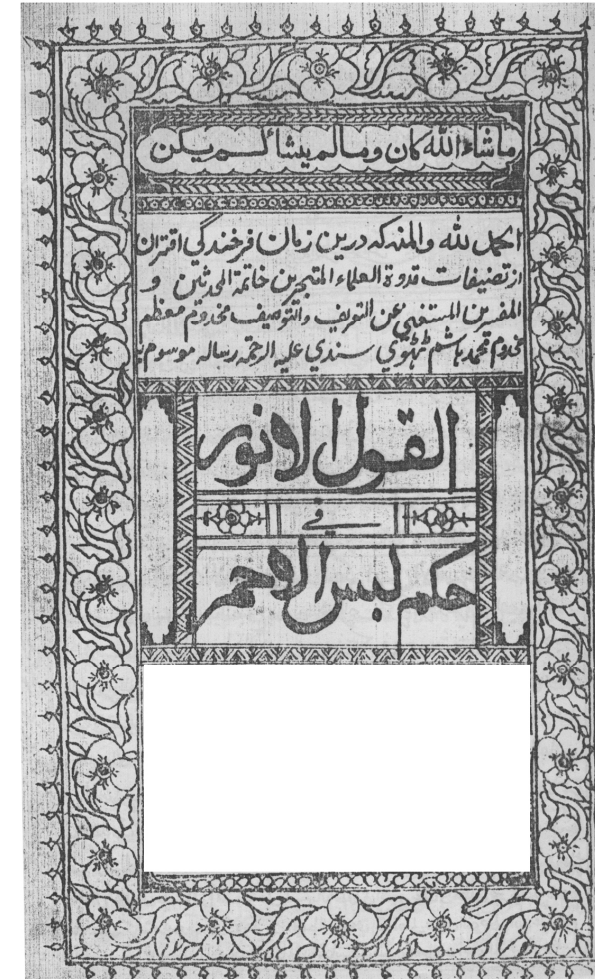 ماشاء الله کان وبالم یشا لم یکن
الحمل لله والمنه که درین زمان فرخندگي اقتران
از تصنیفات قدوة العلماء المتبحرین خاتمة المحدثین و
المفسرین المستغني عن التعریف والتوصیف مخدوم معظم
مخدوم محمد هاشم ٹهٹوي سندي علیه الرحمة رساله موسوم به
القول الانور
في
حکم لبس الاحمر